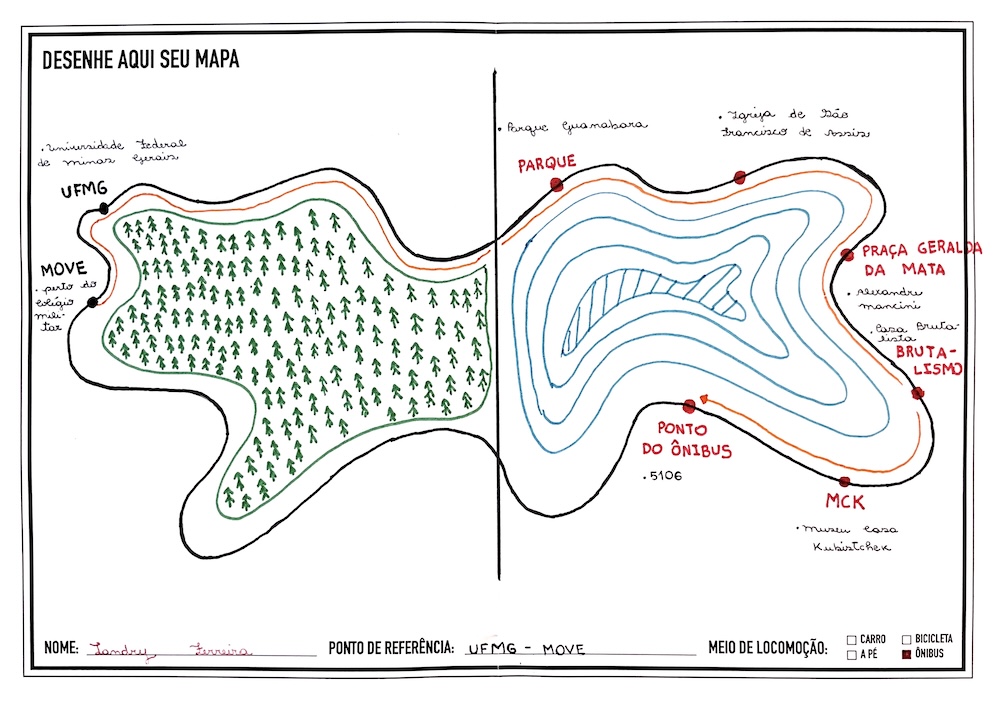 DESENHE AQUI SEU MAPA
. Universidade Federal
de Minas Gerais
UFMG
MOVE
. perto do
Colégio
mili-
tar
. Parque Guanabara
PARQUE
. Igreja de São
Francisco de Assis
PRAÇA GERALDA
DA MATA
. Alexandre
mancini
. Casa Bruta-
lista
BRUTA-
LISMO
PONTO
DO ÔNIBUS
. 5106
MCK
. Museu Casa
Kubistchek
NOME: Landry Ferreira
PONTO DE REFERÊNCIA: UFMG - MOVE
MEIO DE LOCOMOÇÃO:
CARRO
BICICLETA
A PÉ
ÔNIBUS